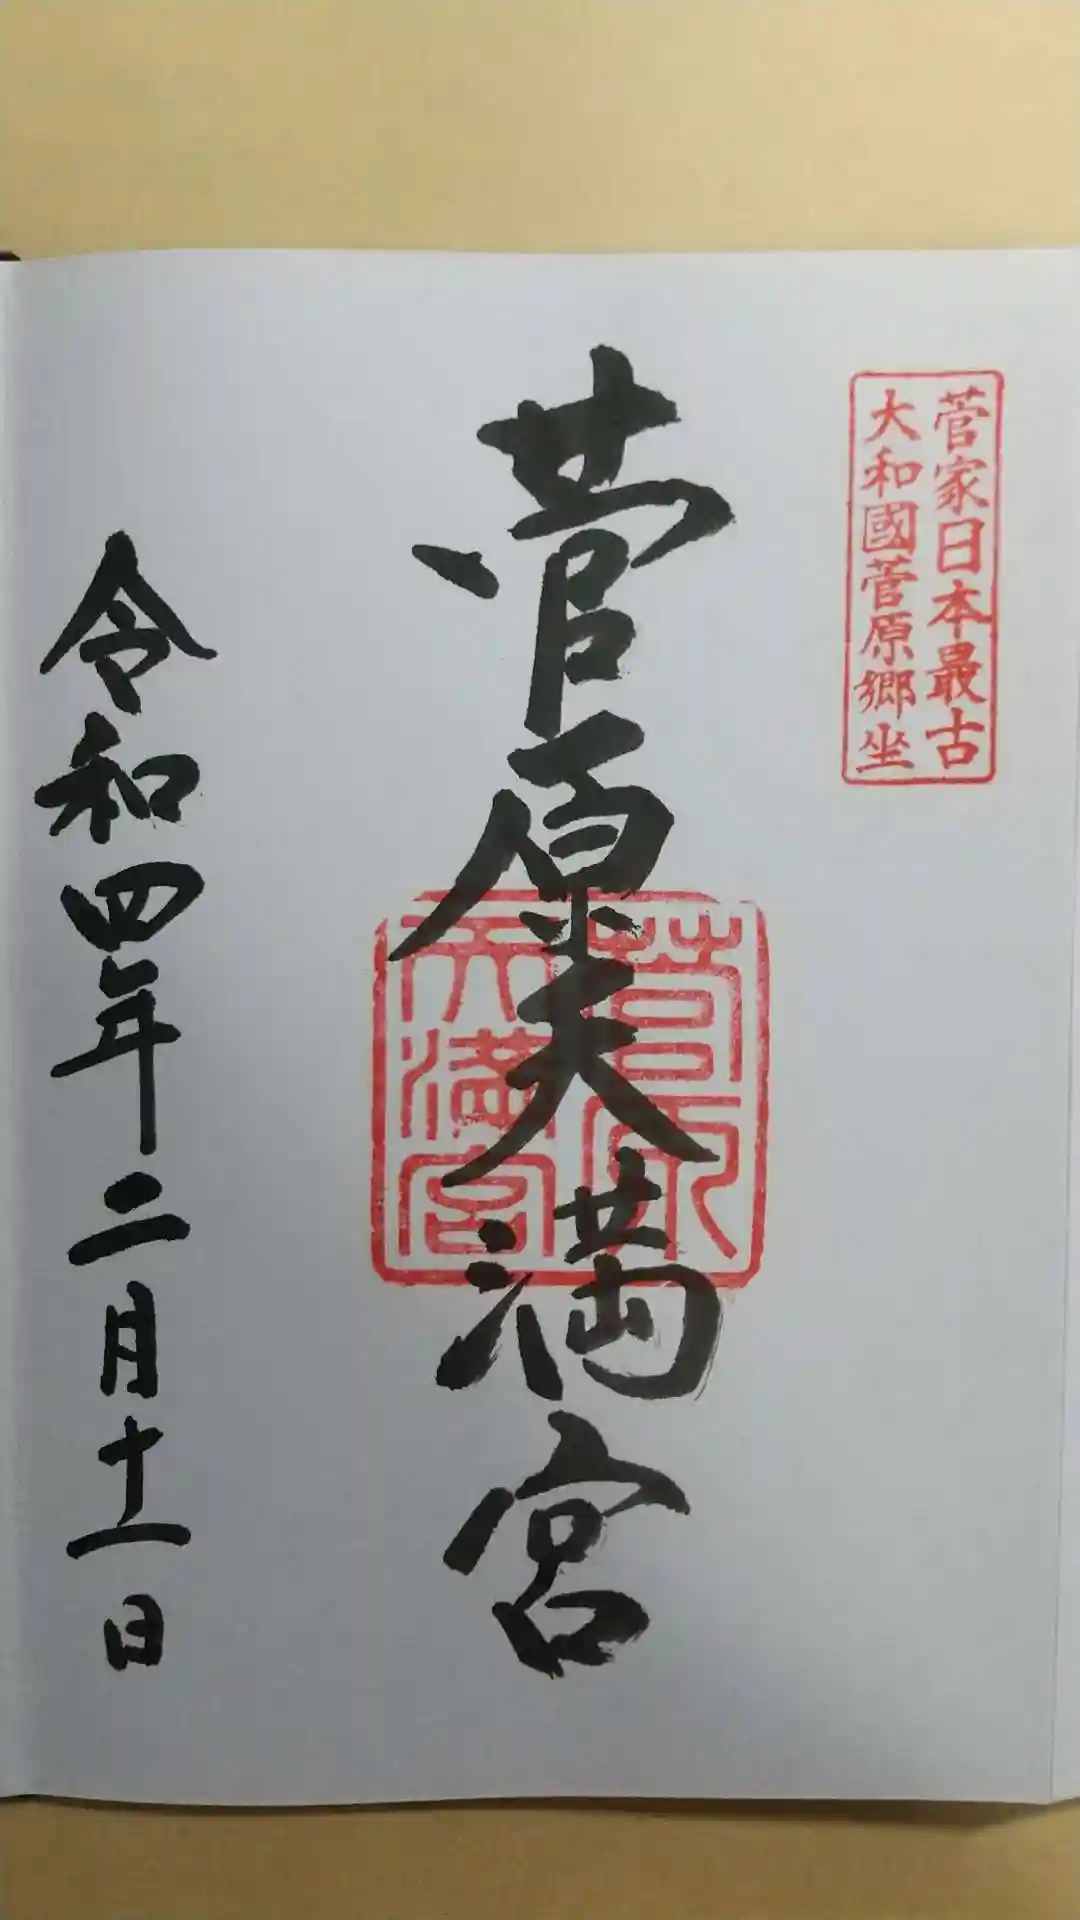 菅家日本最古
大和國菅原郷坐
菅原天満宮
菅原
天満宮
令和四年二月十一日